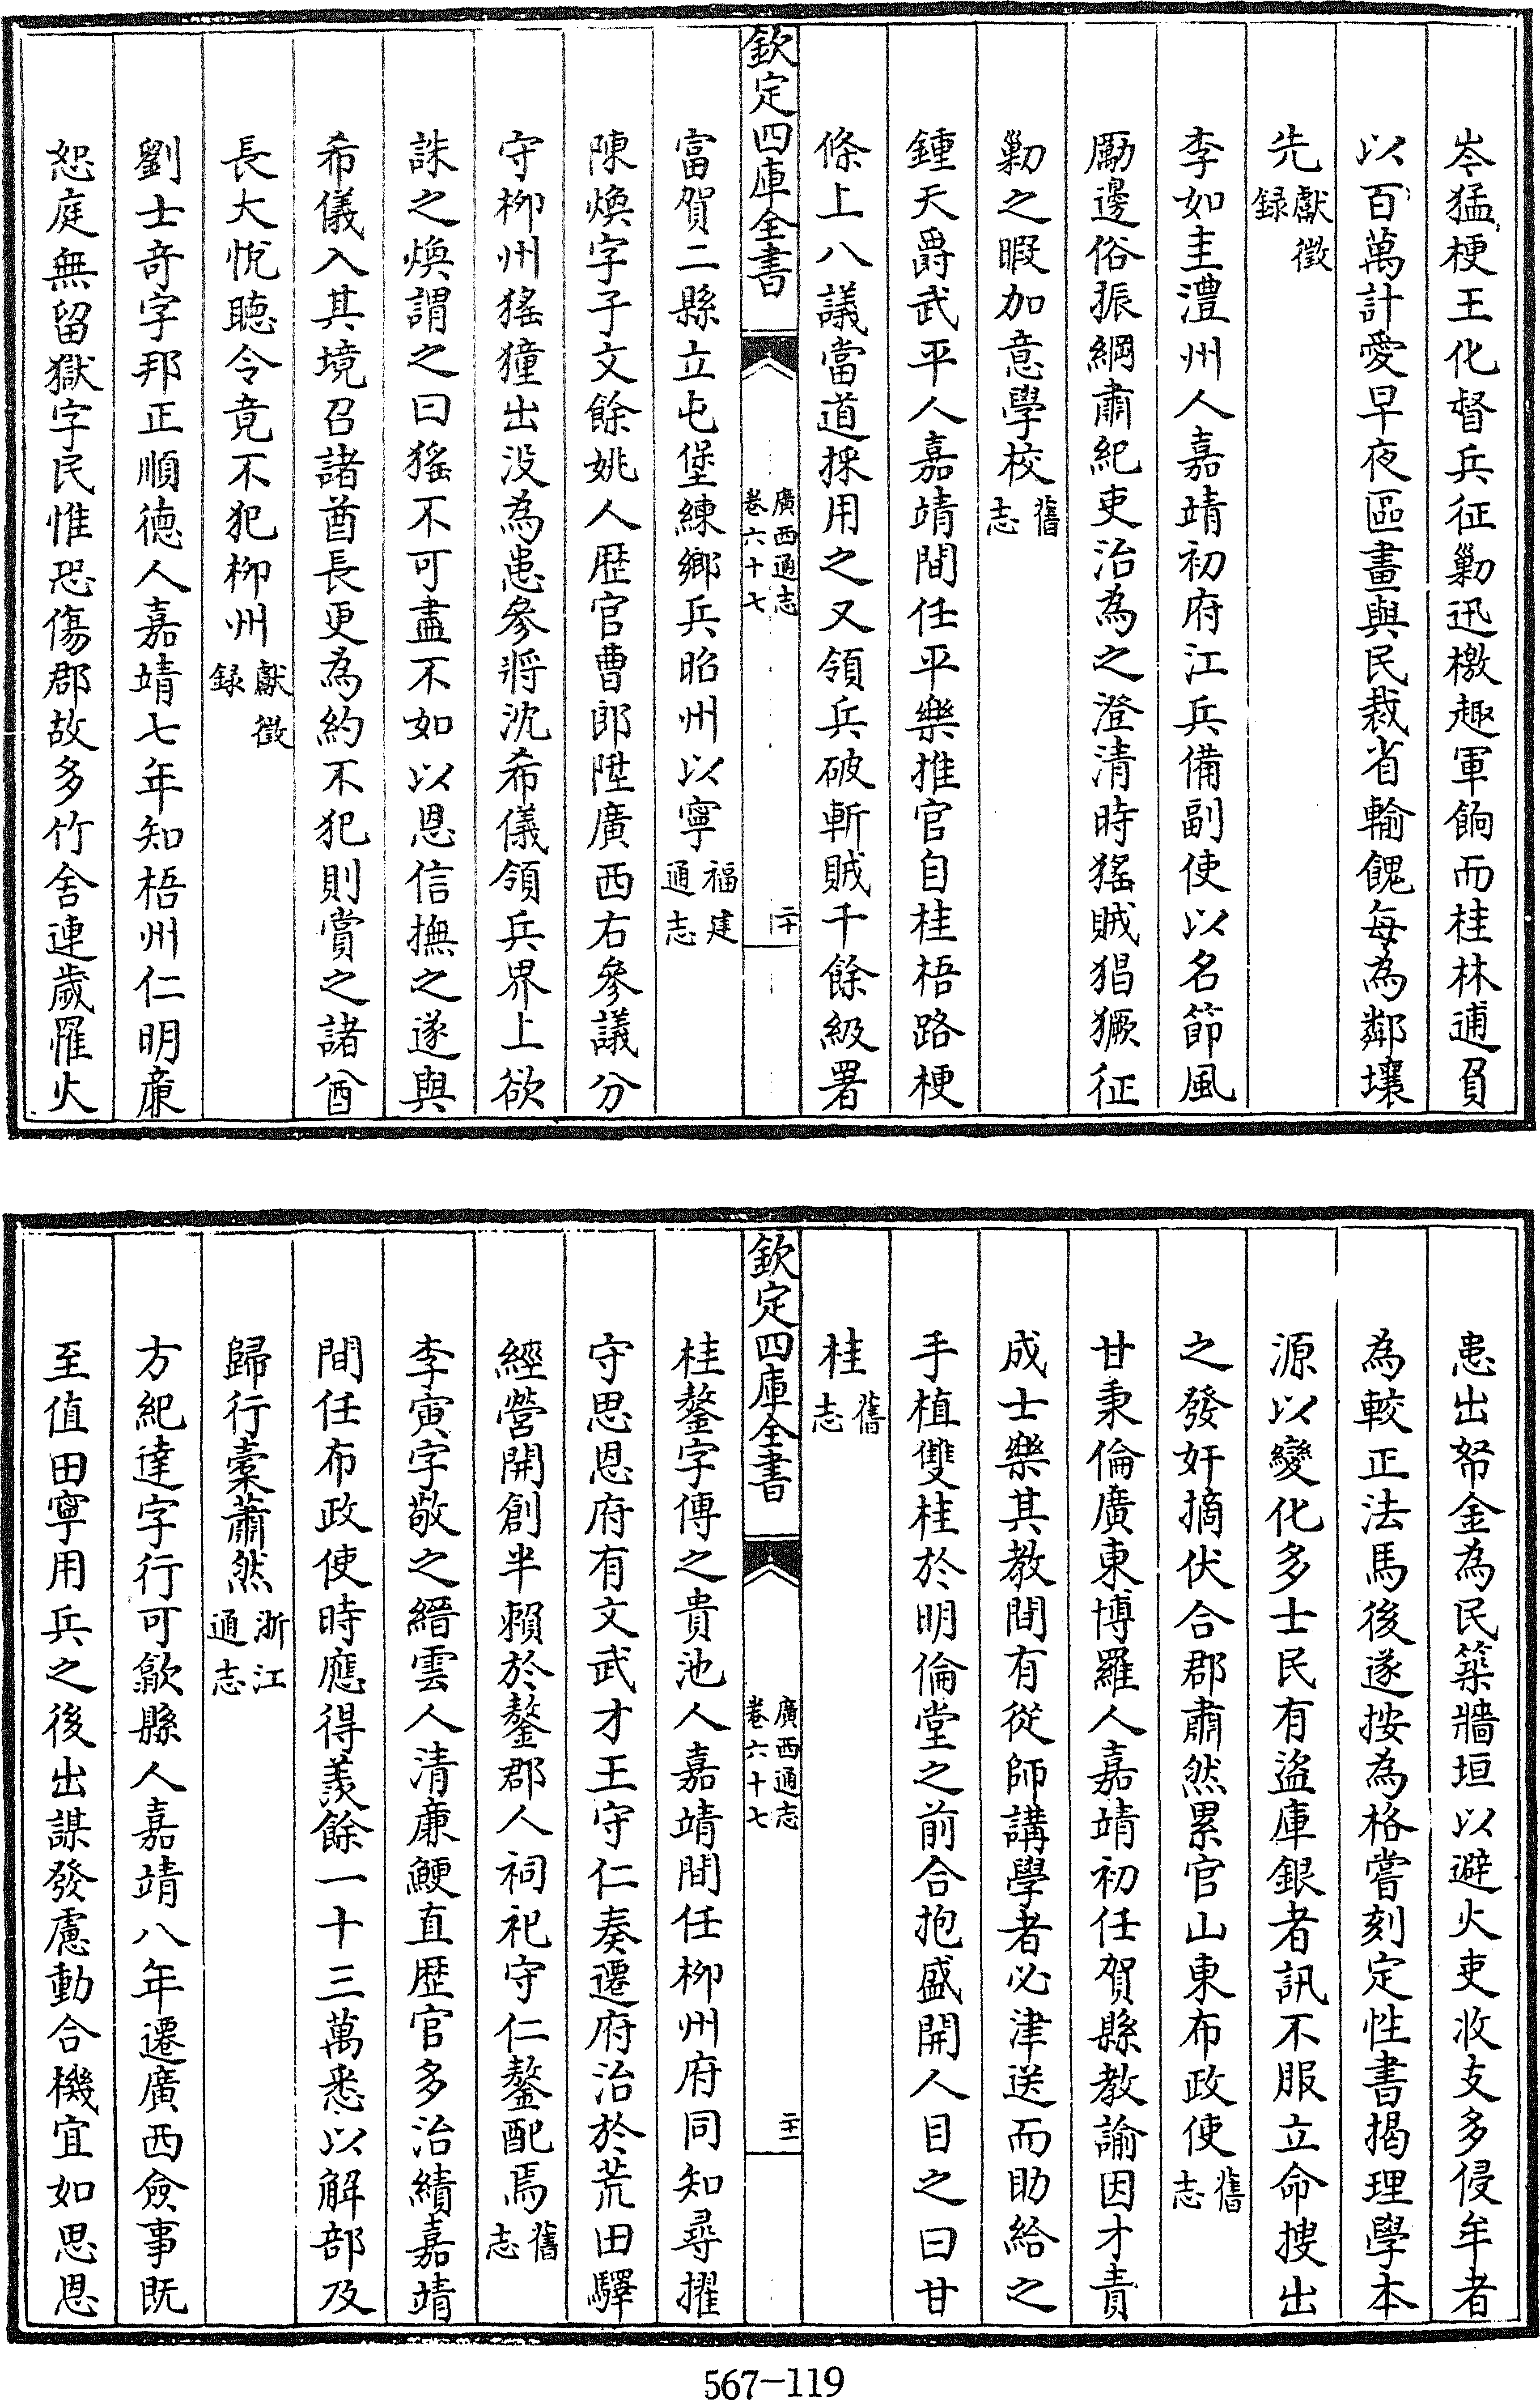 岑猛梗王化督兵征勦迅檄趣軍餉而桂林逋負
以百萬計愛早夜區畫與民裁省輸餽每為鄰壤
先獻徵錄
李如圭澧州人嘉靖初府江兵備副使以名節風
勵邊俗振綱肅紀吏治為之澄清時猺賊猖獗征
勦之暇加意學校舊志
鍾天爵武平人嘉靖間任平樂推官自桂梧路梗
條上八議當道採用之又領兵破斬賊千餘級署
欽定四庫全書
廣西通志
卷六十七
二十
富賀二縣立屯堡練鄉兵昭州以寧福建通志
陳煥字子文餘姚人歴官曹郎陞廣西右參議分
守柳州猺獞出没為患參將沈希儀領兵界上欲
誅之煥謂之曰猺不可盡不如以恩信撫之遂與
希儀入其境召諸酋長更為約不犯則賞之諸酋
長大悅聽令竟不犯柳州獻徵錄
劉士奇字邦正順德人嘉靖七年知梧州仁明亷
恕庭無留獄字民惟恐傷郡故多竹舍連歲罹火
患出帑金為民築牆垣以避火吏收支多侵牟者
為較正法馬後遂按為格嘗刻定性書揭理學本
源以變化多士民有盜庫銀者訊不服立命搜出
之發奸摘伏合郡肅然累官山東布政使舊志
甘秉倫廣東博羅人嘉靖初任賀縣教諭因才責
成士樂其教間有從師講學者必津送而助給之
手植雙桂於明倫堂之前合抱盛開人目之曰甘
桂舊志
欽定四庫全書
廣西通志
卷六十七
二十一
桂鏊字傳之貴池人嘉靖間任柳州府同知尋擢
守思恩府有文武才王守仁奏遷府治於荒田驛
經營開創半賴於鏊郡人祠祀守仁鏊配焉舊志
李寅字敬之縉雲人清亷鯁直歴官多治績嘉靖
間任布政使時應得羨餘一十三萬悉以解部及
歸行橐蕭然浙江通志
方紀達字行可歙縣人嘉靖八年遷廣西僉事既
至值田寧用兵之後出謀發慮動合機宜如思恩
567-119